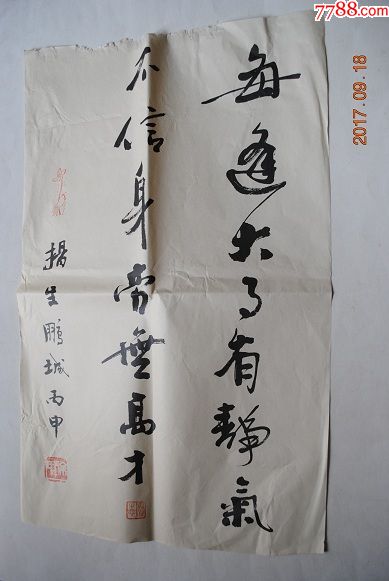 每逢大事有靜氣
不信身旁無高才
揚生鵬城丙申
7788.com
2017.09.18